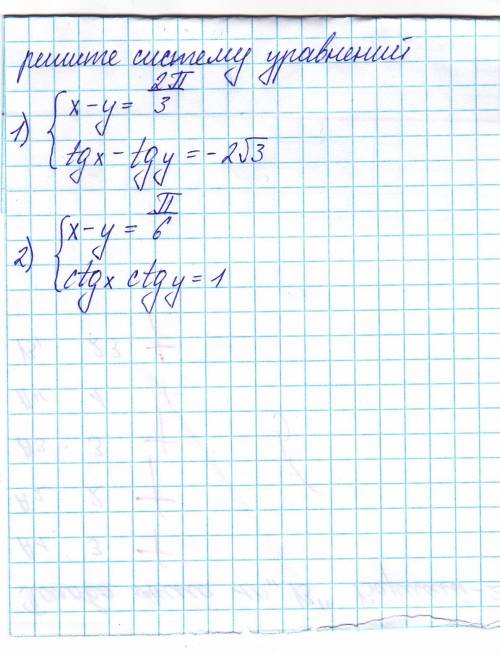 решите систему уравнений
1) { x - y = 2π/3
tgx - tgy = -2√3
2) { x - y = π/6
ctgx ctgy = 1